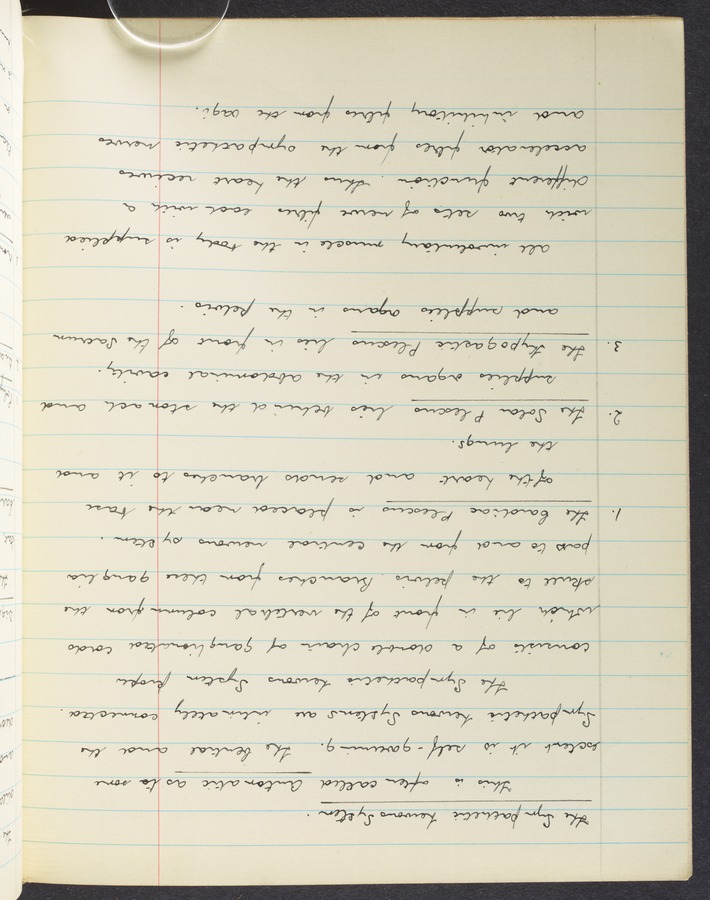 The Sympathetic Nervous System.
This is often called Automatic as to some
extent it is self-governing. The Central and the
Sympathetic Nervous Systems are intimately connected.
The Sympathetic Nervous System proper
consists of a double chain of ganglionated cords
which lie in front of the vertebral column from the
skull to the pelvis. Branches from these ganglia
pass to and from the central nervous system.
1. The Cardiac Plexus is placed near the base
of the heart and sends branches to it and
the lungs.
2. The Solar Plexus lies behind the stomach and
supplies organs in the abdominal cavity.
3. The Hypogastic Plexus lies in front of the Sacrum
and supplies organs in the pelvis.
All involuntary muscle in the body is supplied
with two sets of nerve fibres each with a
different function. Thus the heart receives
accelerator fibres from the sympathetic nerves
and inhibitory fibres from the vagi.